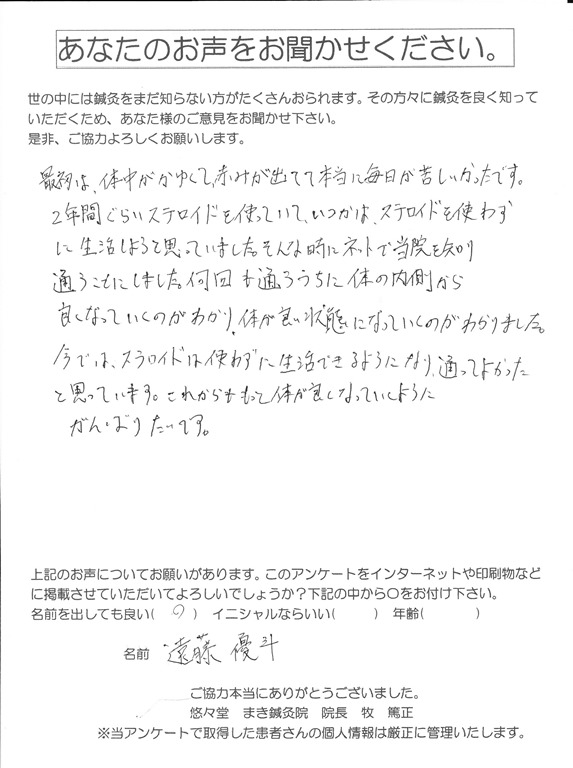 あなたのお声をお聞かせください。
世の中には鍼灸をまだ知らない方がたくさんおられます。その方々に鍼灸を良く知って
いただくため、あなた様のご意見をお聞かせ下さい。
是非、ご協力よろしくお願いします。
最初は、体中がかゆくて赤みが出てて本当に毎日が苦しかったです。
2年間ぐらいステロイドを使っていて、いつかは、ステロイドを使わず
に生活しようと思っていました。そんな時にネットで当院を知り
通うことにしました。何回も通ううちに体の内側から
良くなっていくのがわかり、体が良い状態になっていくのがわかりました。
今では、ステロイドは使わずに生活できるようになり、通ってよかった
と思っています。これからももっと体が良くなっていくように
がんばりたいです。
上記のお声についてお願いがあります。このアンケートをインターネットや印刷物など
に掲載させていただいてよろしいでしょうか？下記の中から○をお付け下さい。
名前を出しても良い( ○ ) イニシャルならいい( ) 年齢( )
名前 遠藤 優斗
ご協力本当にありがとうございました。
悠々堂 まき鍼灸院 院長 牧 篤正
※当アンケートで取得した患者さんの個人情報は厳正に管理いたします。